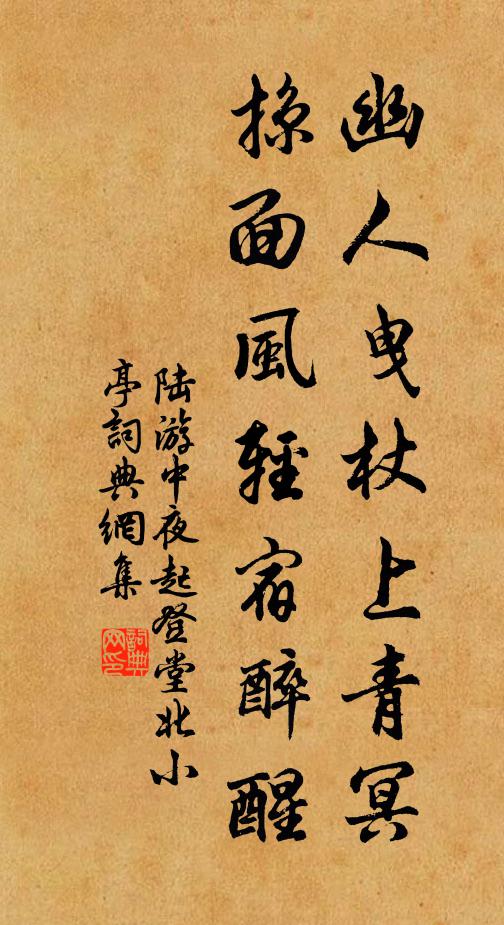 幽人曳杖上青冥
掠面風輕宿醉醒
陆游中夜起登堂北小
亭詞典網集
詞典
网印